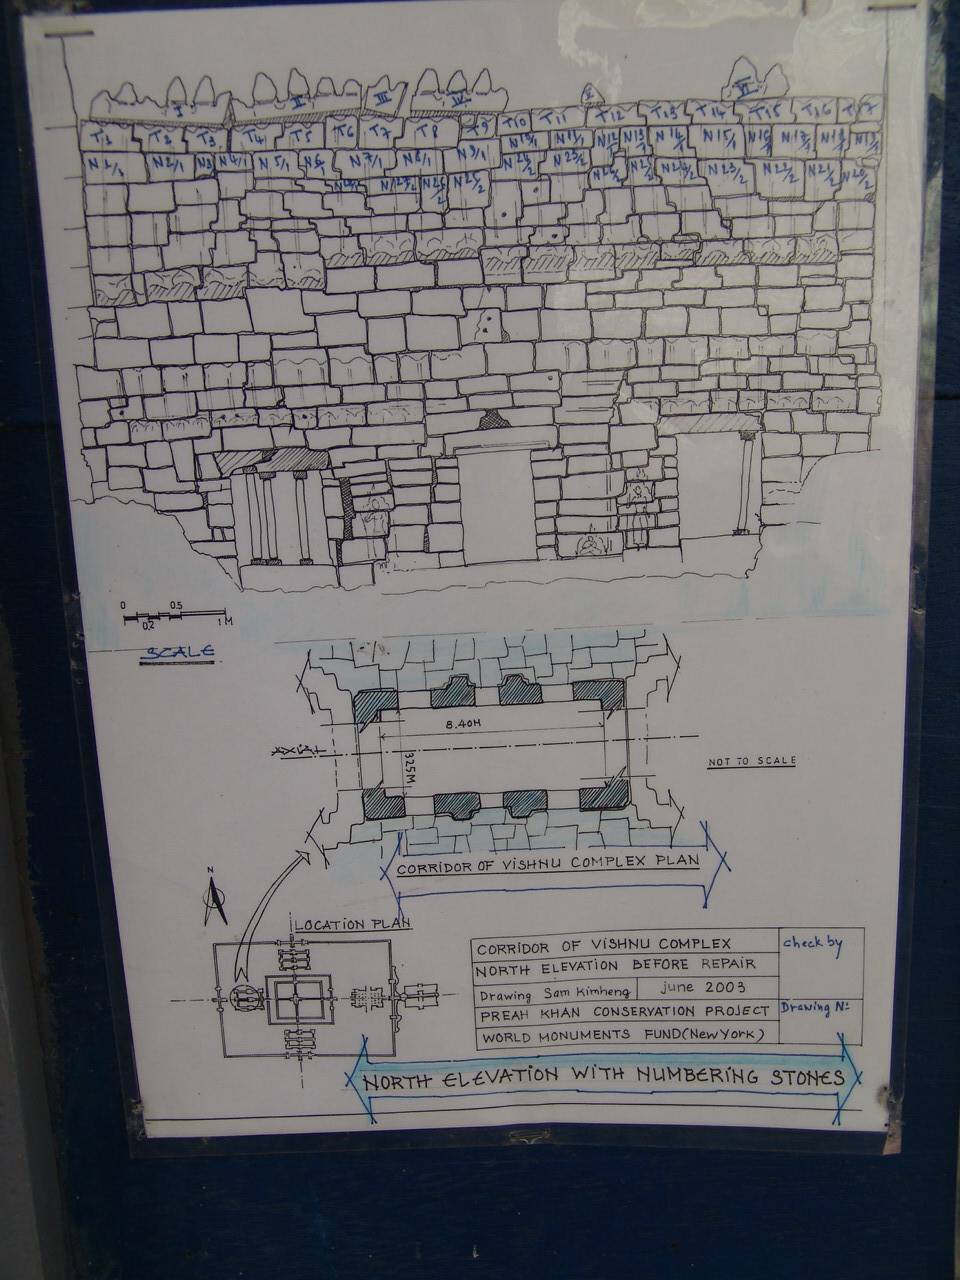 I II III IV V VI
T1 T2 T3 T4 T5 T6 T7 T8 T9 T10 T11 T12 T13 T14 T15 T16
N2/1 N5/1 N7/1 N8/1 N9/1 N10/1 N11/1 N12/1 N13/1 N14/1 N15/1 N16/1 N17/1
N23/2 N22/2 N21/2 N20/2
0 0.5
0.2 1M
SCALE
8.40M
AXIAL
3.25M
NOT TO SCALE
CORRIDOR OF VISHNU COMPLEX PLAN
N
LOCATION PLAN
CORRIDOR OF VISHNU COMPLEX
check by
NORTH ELEVATION BEFORE REPAIR
Drawing Sam Kimheng june 2003
PREAH KHAN CONSERVATION PROJECT
Drawing No
WORLD MONUMENTS FUND(New York)
NORTH ELEVATION WITH NUMBERING STONES